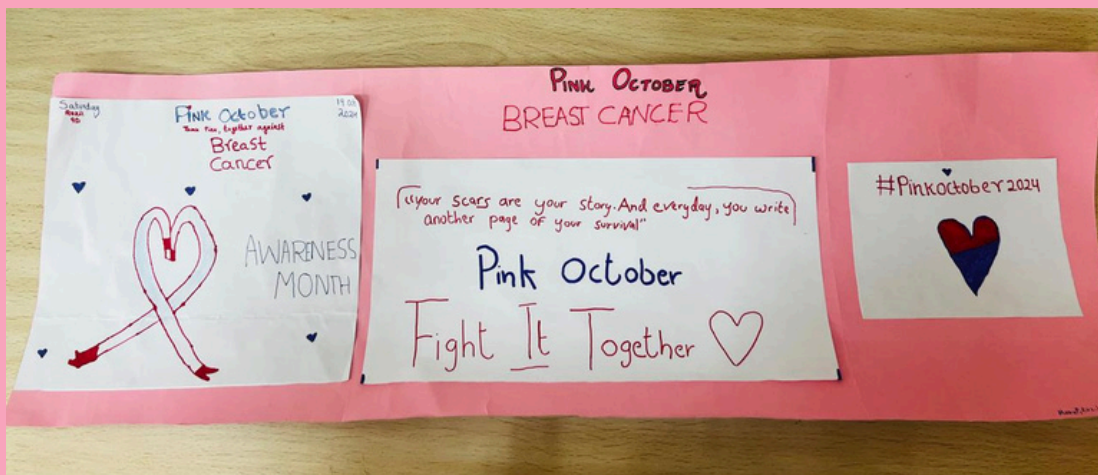 PINK OCTOBER
BREAST CANCER
Saturday
19.03
2024
PINK OCTOBER
together against
Breast
Cancer
AWARENESS
MONTH
"your scars are your story. And everyday, you write
another page of your survival"
Pink October
Fight It Together
#Pinkoctober2024